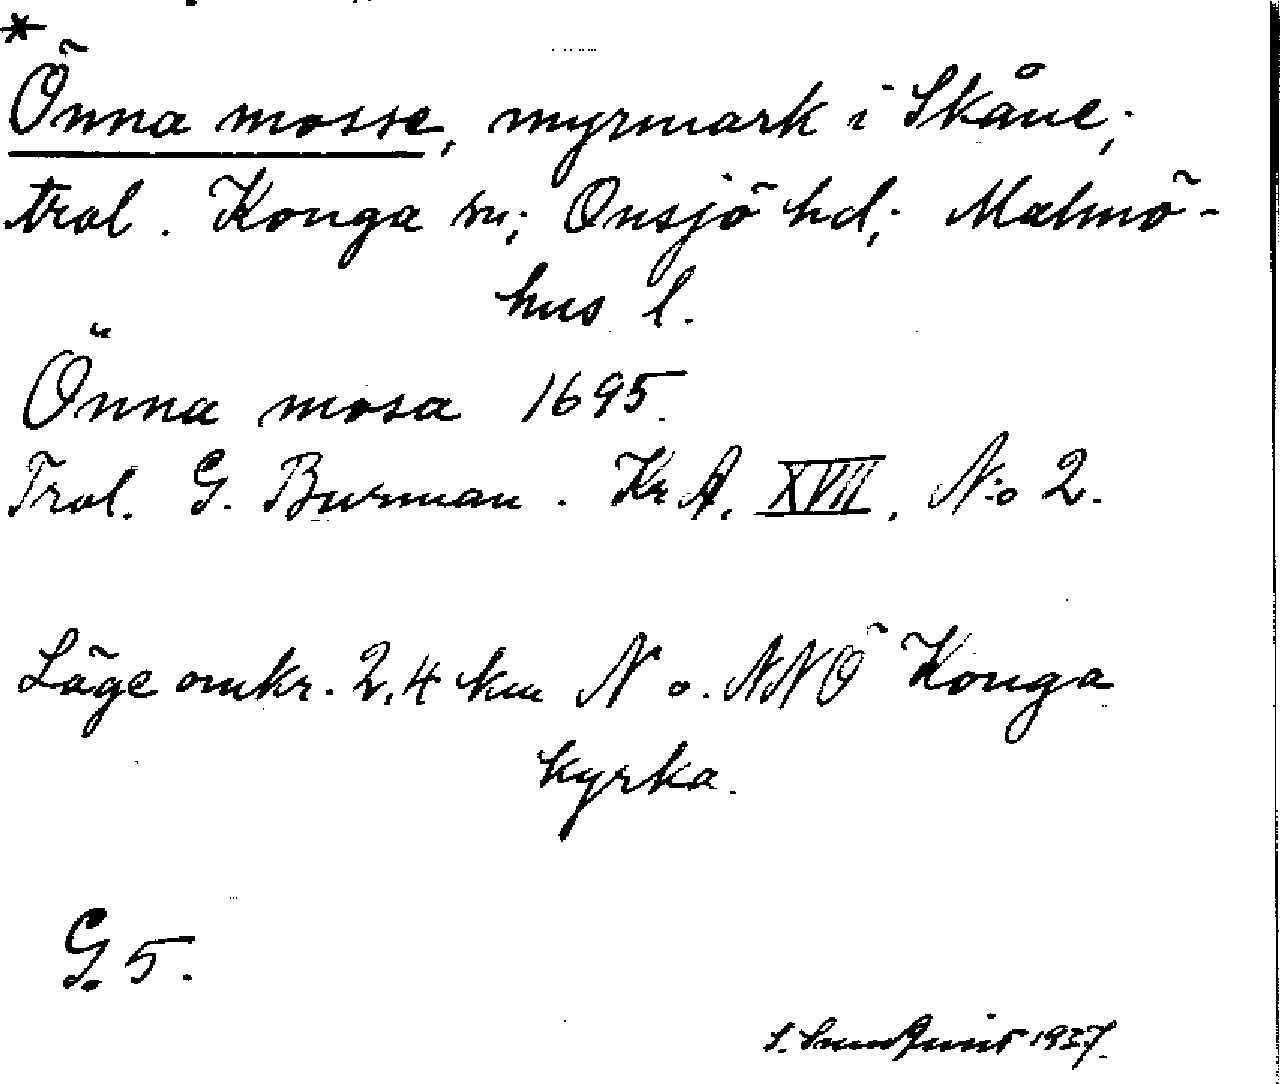 *
Önna mosse, myrmark i Skåne;
trol. Konga sn; Onsjö hd; Malmö-
hus l.
Önna mosa 1695.
Trol. G. Burman. Kr A. XVII. N:o 2.
Läge omkr. 2,4 km N o. NNÖ Konga
kyrka.
G. 5.
S. Sundquist 1927.